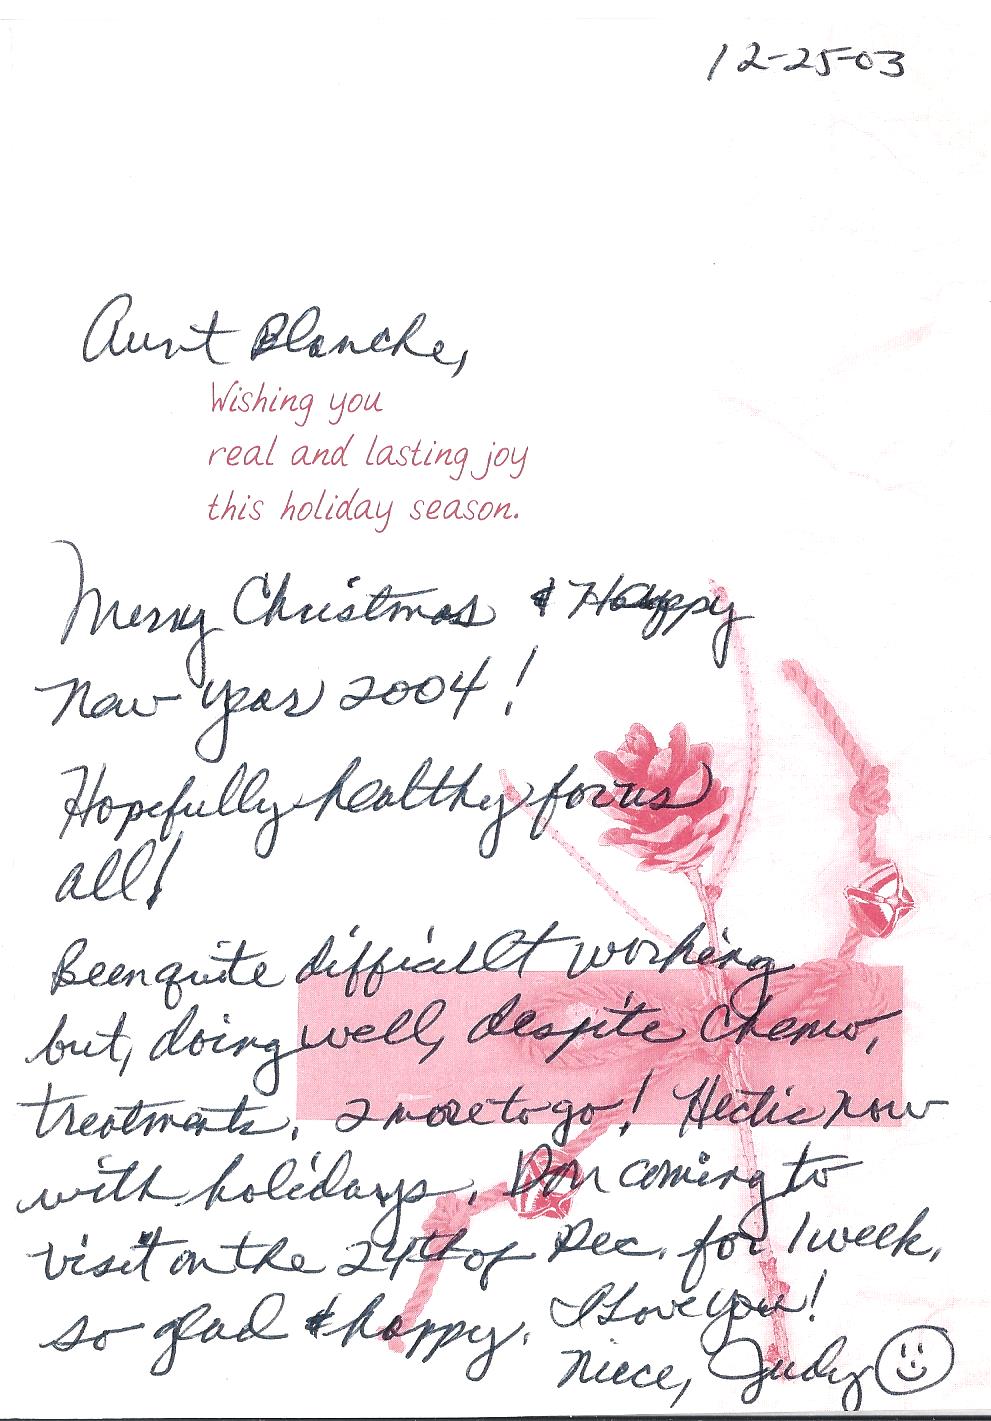 12-25-03
Aunt Blanche,
Wishing you
real and lasting joy
this holiday season.
Merry Christmas & Happy
New Year 2004!
Hopefully healthy for us
all!
Been quite difficult working
but, doing well, despite chemo,
treatments. 2 more to go! Hectic now
with holidays. Don coming to
visit on the 24th of Dec. for 1 week,
so glad & happy. I Love you!
Niece, Judy